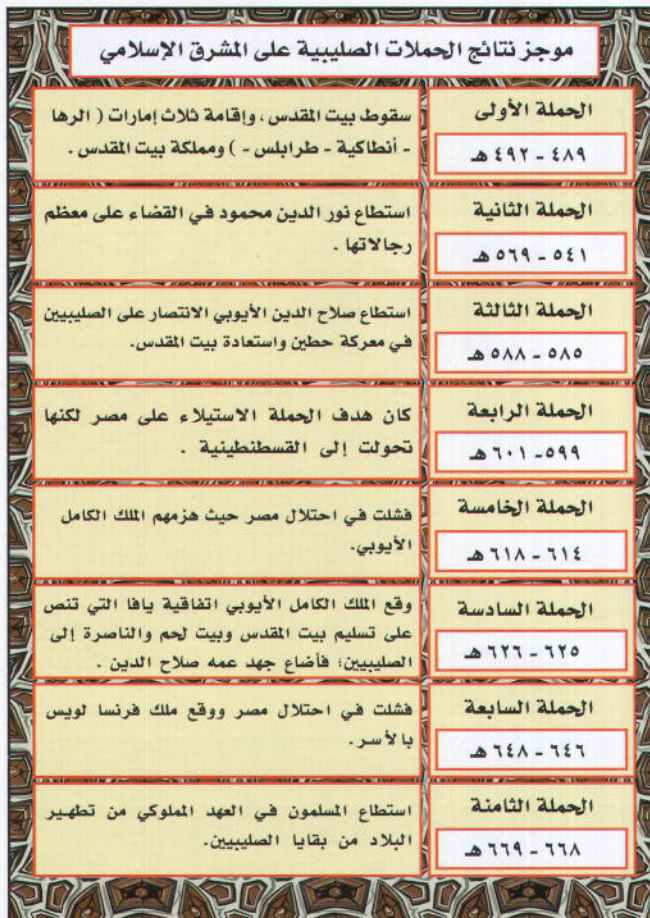 موجز نتائج الحملات الصليبية على المشرق الإسلامي
الحملة الأولى
٤٨٩ - ٤٩٢ هـ
سقوط بيت المقدس ، وإقامة ثلاث إمارات ( الرها
- أنطاكية - طرابلس - ) ومملكة بيت المقدس .
الحملة الثانية
٥٤١ - ٥٦٩ هـ
استطاع نور الدين محمود في القضاء على معظم
رجالاتها .
الحملة الثالثة
٥٨٥ - ٥٨٨ هـ
استطاع صلاح الدين الأيوبي الانتصار على الصليبيين
في معركة حطين واستعادة بيت المقدس.
الحملة الرابعة
٥٩٩- ٦٠١ هـ
كان هدف الحملة الاستيلاء على مصر لكنها
تحولت إلى القسطنطينية .
الحملة الخامسة
٦١٤ - ٦١٨ هـ
فشلت في احتلال مصر حيث هزمهم الملك الكامل
الأيوبي.
الحملة السادسة
٦٢٥ - ٦٢٦ هـ
وقع الملك الكامل الأيوبي اتفاقية يافا التي تنص
على تسليم بيت المقدس وبيت لحم والناصرة إلى
الصليبيين؛ فأضاع جهد عمه صلاح الدين .
الحملة السابعة
٦٤٦ - ٦٤٨ هـ
فشلت في احتلال مصر ووقع ملك فرنسا لويس
بالأسر.
الحملة الثامنة
٦٦٨ - ٦٦٩ هـ
استطاع المسلمون في العهد المملوكي من تطهير
البلاد من بقايا الصليبيين.